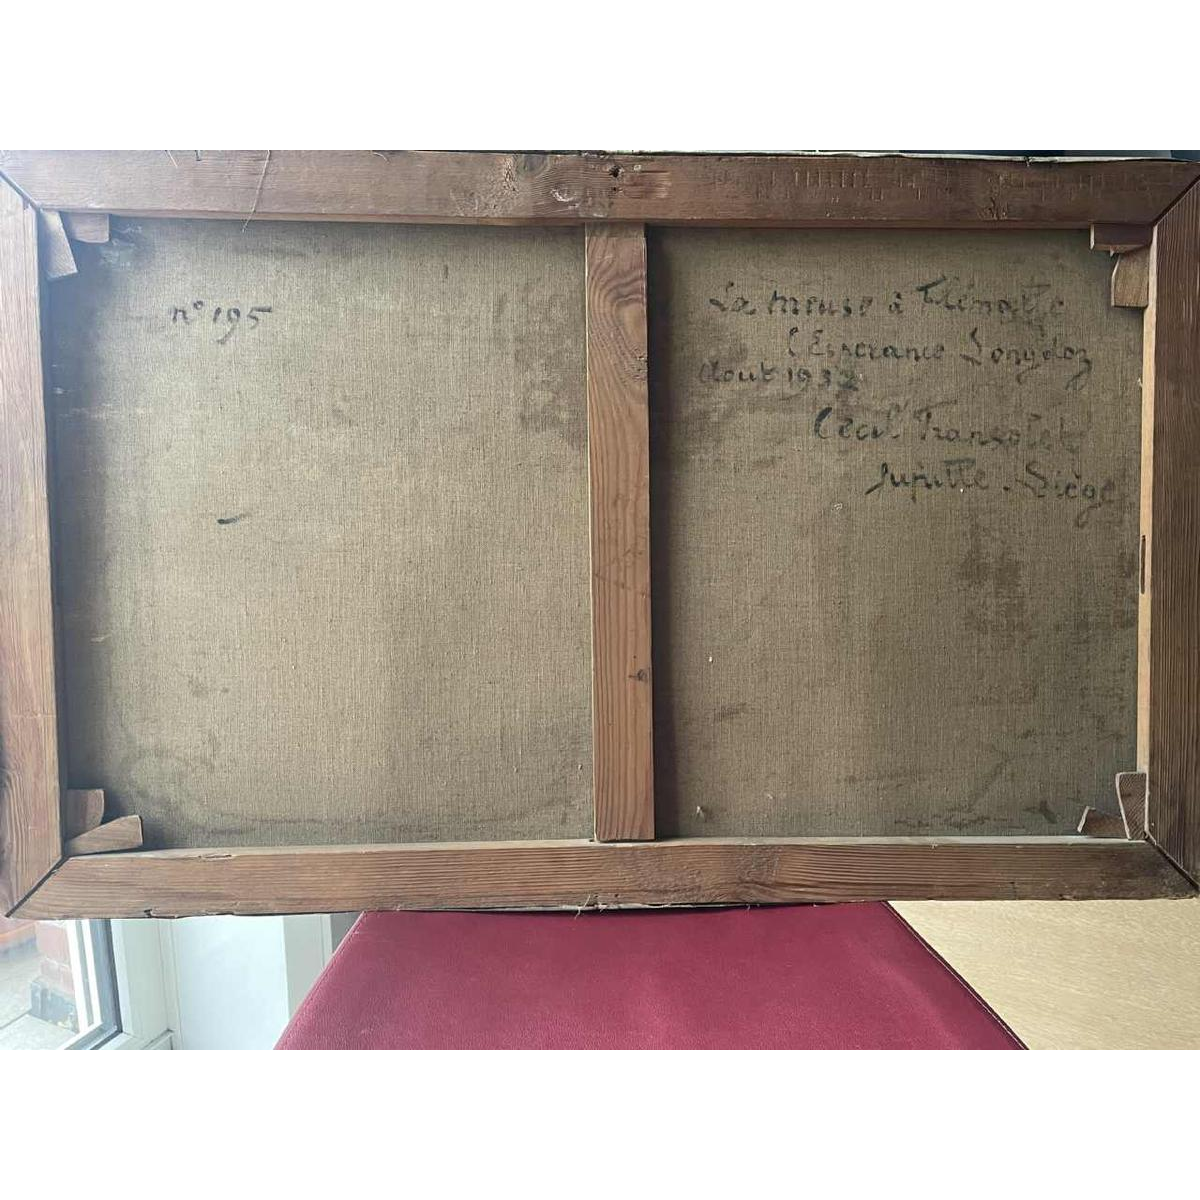 n° 195
La Meuse à Flémalle
l'Esperance Longdoz
Aout 1932
Cécil
Jupille - Liège